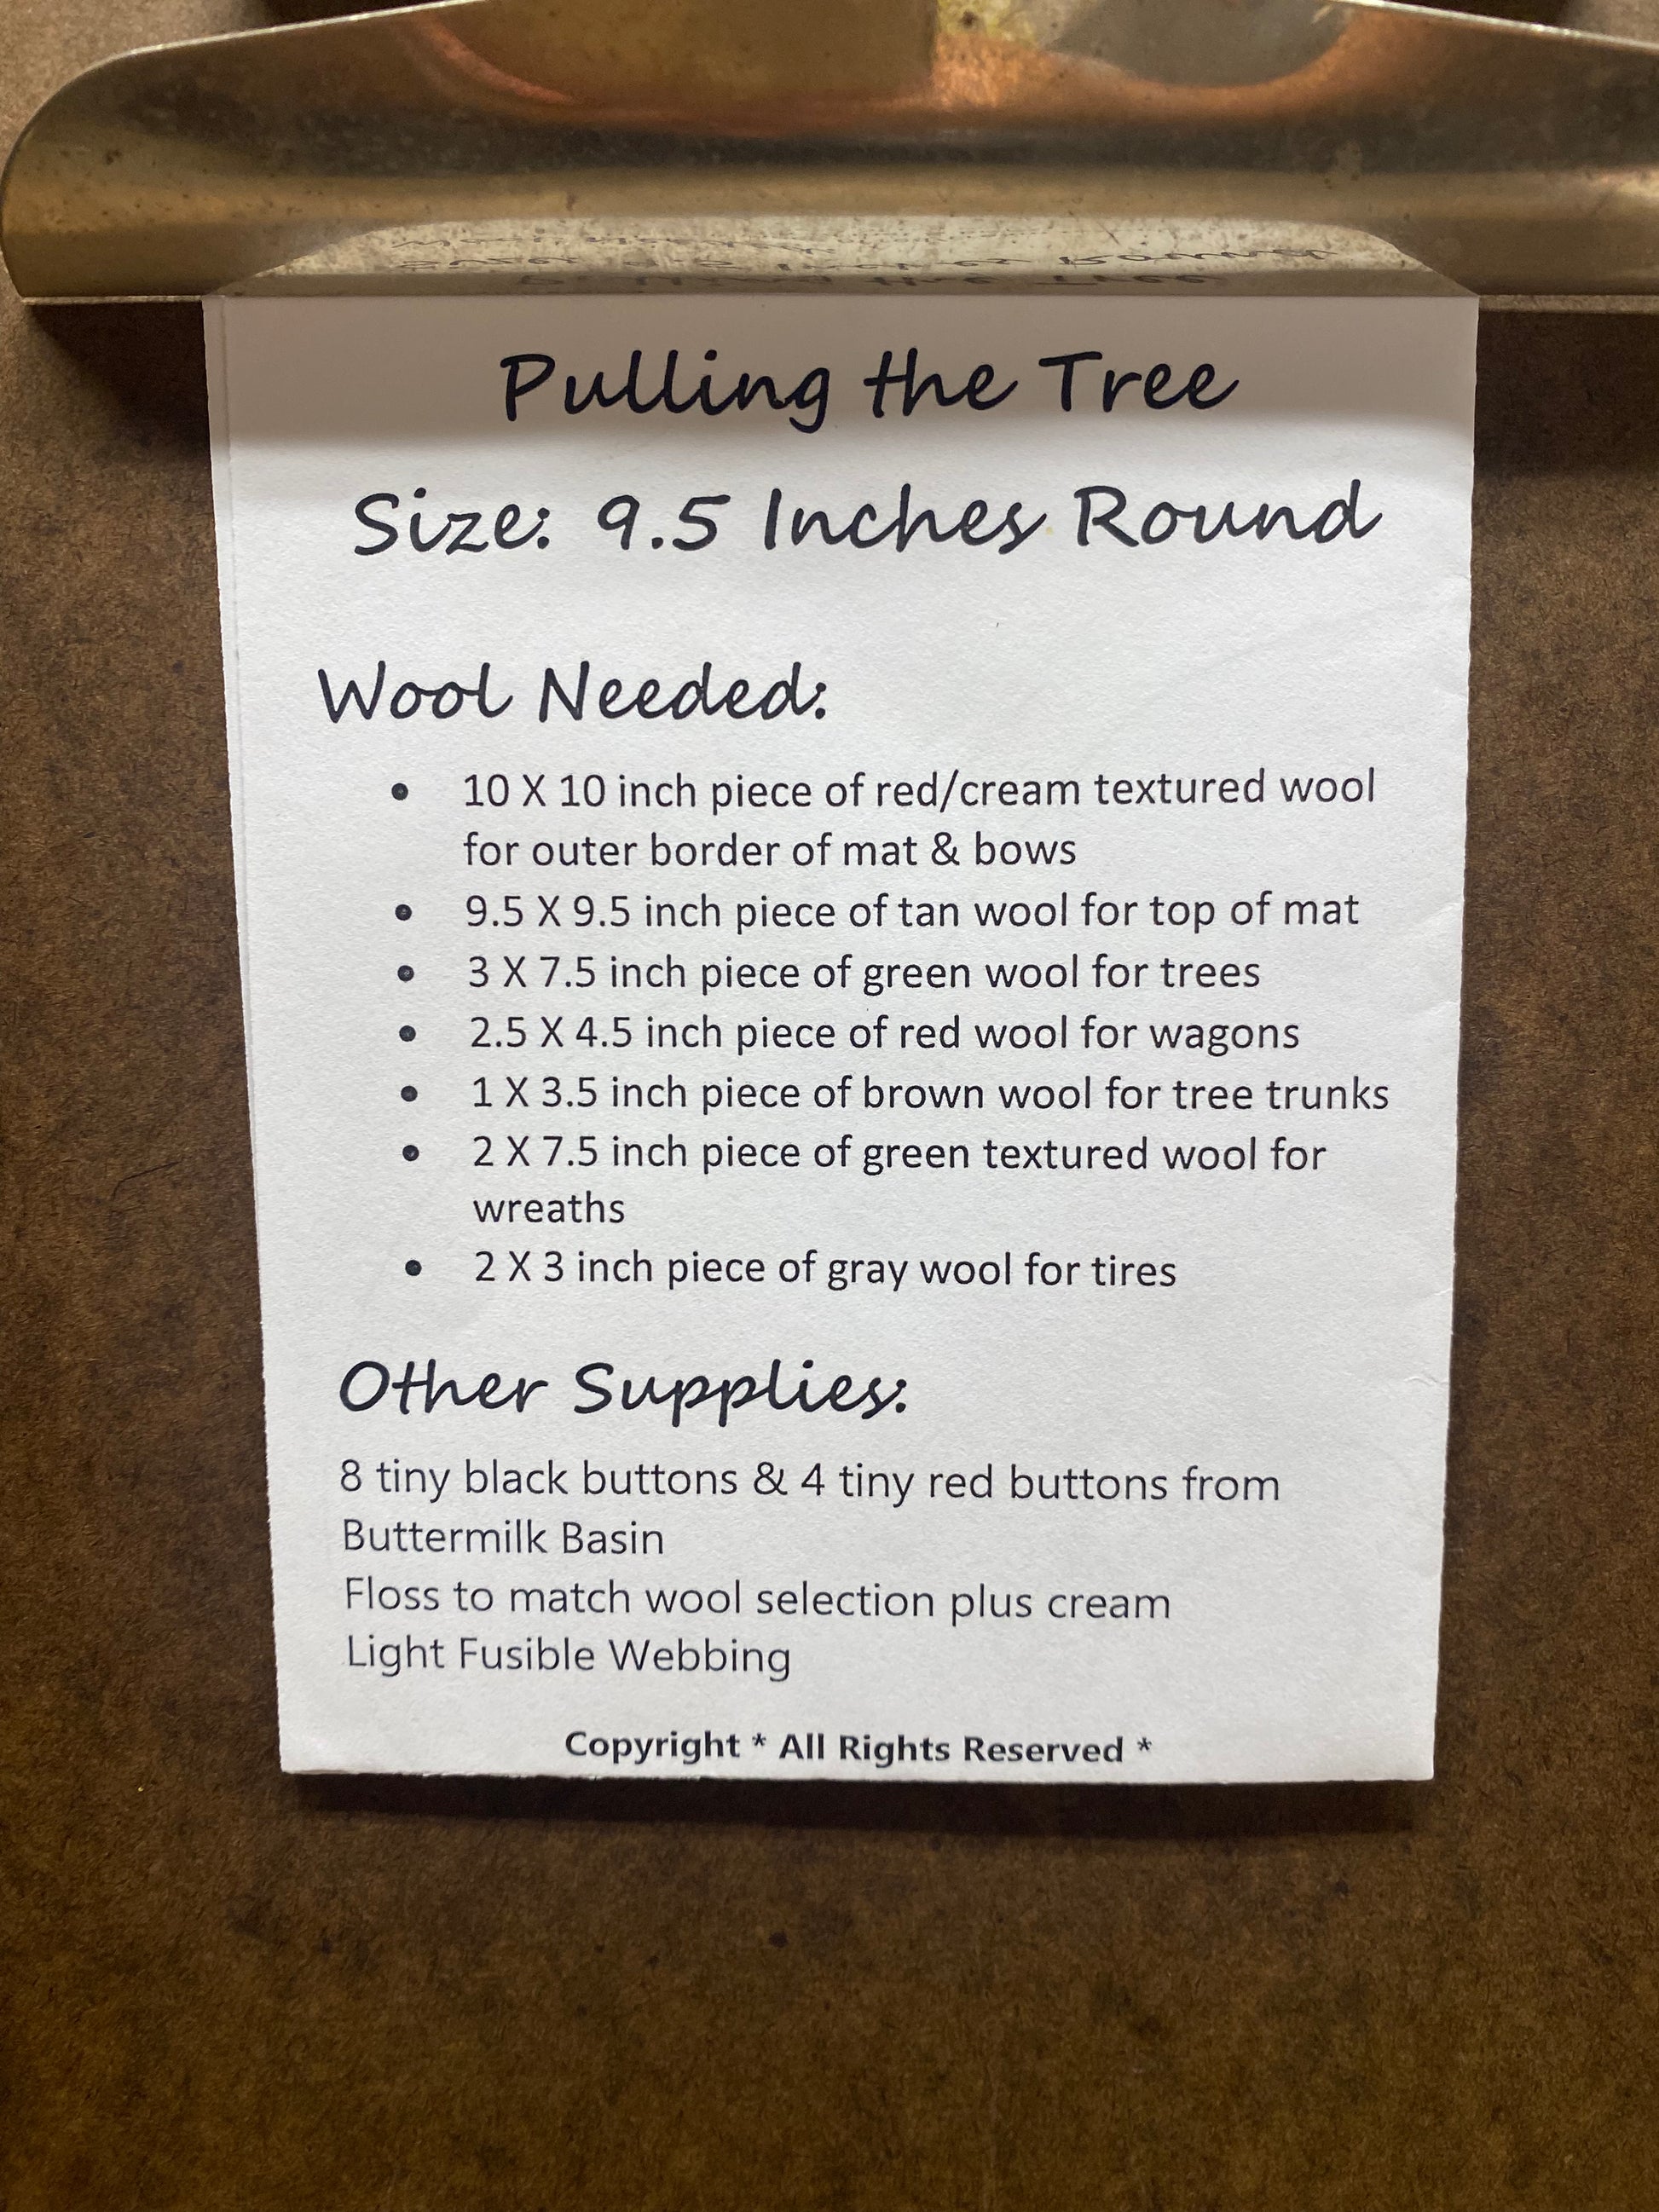 Pulling the Tree
Size: 9.5 Inches Round
Wool Needed:
• 10 X 10 inch piece of red/cream textured wool
for outer border of mat & bows
• 9.5 X 9.5 inch piece of tan wool for top of mat
• 3 X 7.5 inch piece of green wool for trees
• 2.5 X 4.5 inch piece of red wool for wagons
• 1 X 3.5 inch piece of brown wool for tree trunks
• 2 X 7.5 inch piece of green textured wool for
wreaths
• 2 X 3 inch piece of gray wool for tires
Other Supplies:
8 tiny black buttons & 4 tiny red buttons from
Buttermilk Basin
Floss to match wool selection plus cream
Light Fusible Webbing
Copyright * All Rights Reserved *